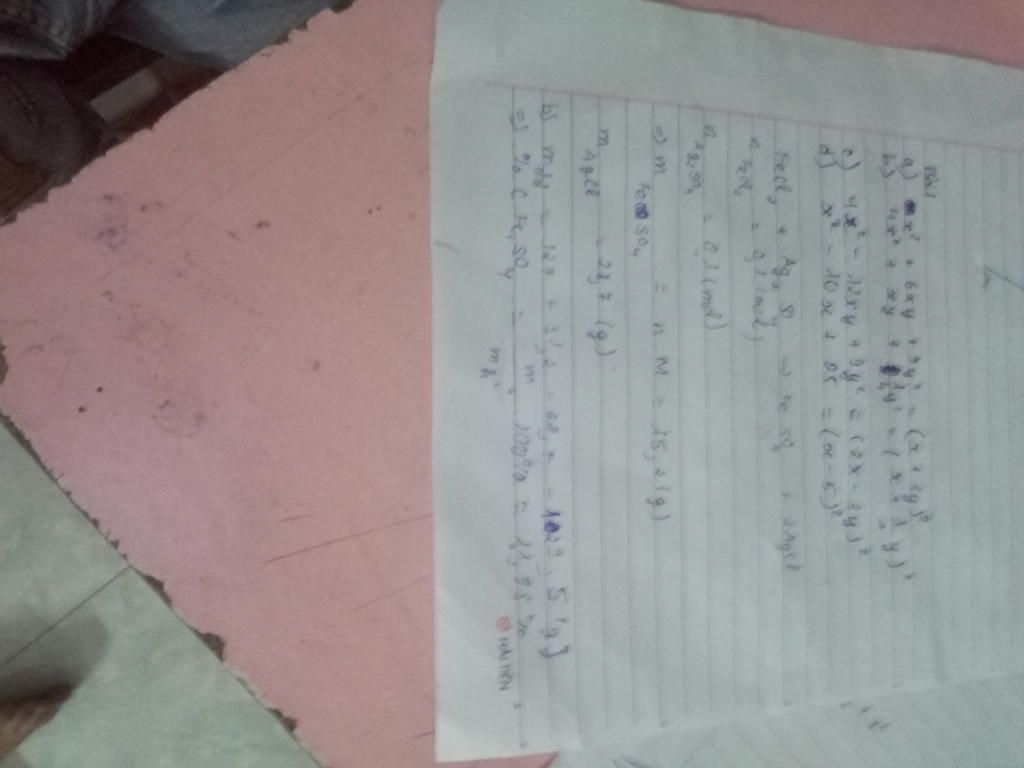 Bài 1
a) x² + 6xy + 9y² = (x + 3y)²
b) x² + xy + ¼y² = (x + ½y)²
c) 4x² - 12xy + 9y² = (2x - 3y)²
d) x² - 10x + 25 = (x - 5)²
FeCl₂ + Ag₂SO₄ → FeSO₄ + 2AgCl
n FeCl₂ = 0,1 (mol)
n Ag₂SO₄ = 0,1 (mol)
=> m FeSO₄ = n.M = 15,2 (g)
m AgCl = 28,7 (g)
b) mdd = 127 + 31,2 - 28,7 = 129,5 (g)
=> % C FeSO₄ = 100% =
HẢI TIẾN